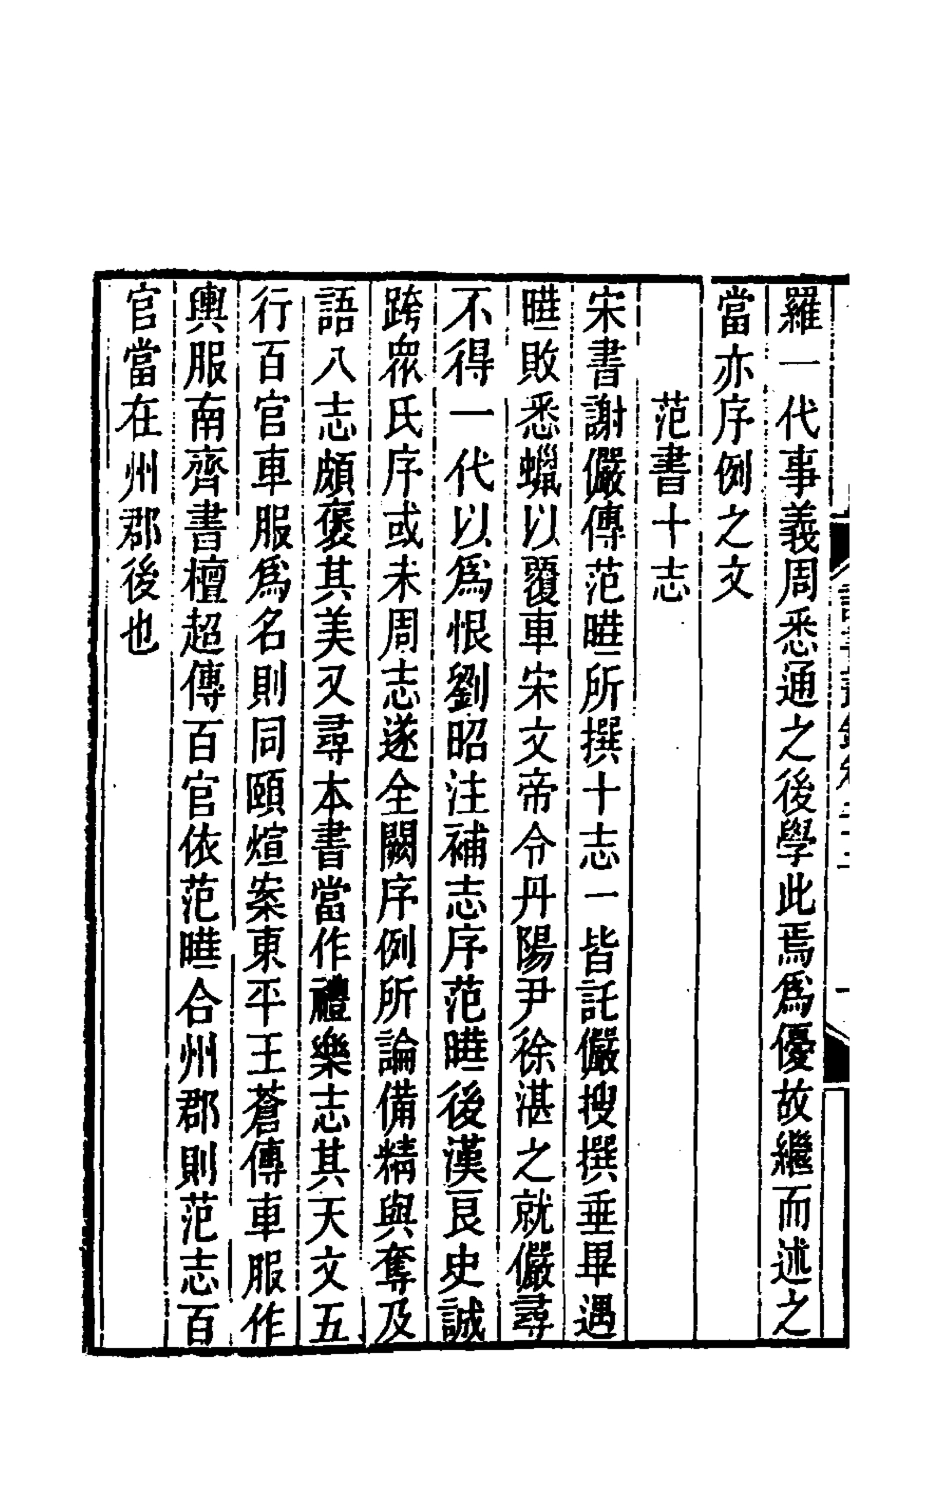 羅一代事義周悉通之後學此焉爲優故繼而述之
當亦序例之文
范書十志
宋書謝儼傳范曄所撰十志一皆託儼搜撰垂畢遇
曄敗悉蠟以覆車宋文帝令丹陽尹徐湛之就儼尋
不得一代以爲恨劉昭注補志序范曄後漢良史誠
跨衆氏序或未周志遂全闕序例所論備精與奪及
語八志頗褒其美又尋本書當作禮樂志其天文五
行百官車服爲名則同頤煊案東平王蒼傳車服作
輿服南齊書檀超傳百官依范曄合州郡則范志百
官當在州郡後也